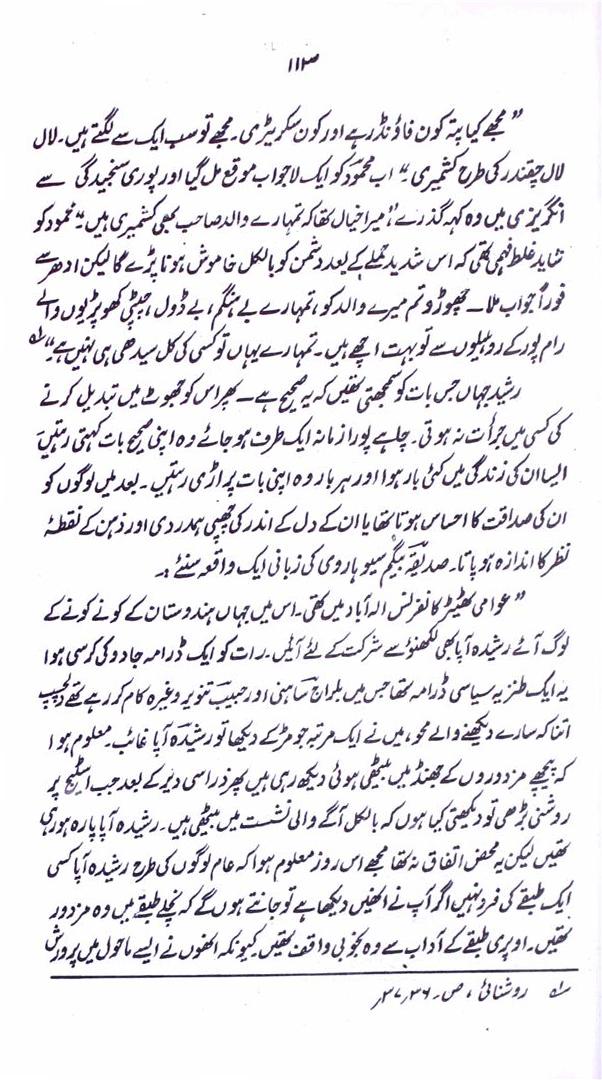 ۱۱۳
”مجھے کیا پتہ کون فاؤنڈر ہے اور کون سکریٹری۔ مجھے تو سب ایک سے لگتے ہیں۔ لال
لال چقندر کی طرح کشمیری۔“ اب محمود کو ایک لاجواب موقع مل گیا اور پوری سنجیدگی سے
انگریزی میں وہ کہہ گذرے ”میرا خیال تھا کہ تمہارے والد صاحب بھی کشمیری ہیں۔“ محمود کو
شاید غلط فہمی تھی کہ اس شدید حملے کے بعد دشمن کو بالکل خاموش ہونا پڑے گا لیکن ادھر سے
فوراً جواب ملا۔ چھوڑو تم میرے والد کو، تمہارے بے ہنگم، بے ڈول، چپٹی کھوپڑیوں والے
رام پور کے روہیلوں سے تو بہت اچھے ہیں۔ تمہارے یہاں تو کسی کی کل سیدھی ہی نہیں ہے۔“ ۱؎
رشید جہاں جس بات کو سمجھتی تھیں کہ یہ صحیح ہے۔ پھر اس کو جھوٹ میں تبدیل کرنے
کی کسی میں جرأت نہ ہوتی۔ چاہے پورا زمانہ ایک طرف ہو جائے وہ اپنی صحیح بات کہتی رہتیں
ایسا ان کی زندگی میں کئی بار ہوا اور ہر بار وہ اپنی بات پر اڑی رہتیں۔ بعد میں لوگوں کو
ان کی صداقت کا احساس ہوتا تھا یا ان کے دل کے اندر کی چھپی ہمدردی اور ذہن کے نقطۂ
نظر کا اندازہ ہو پاتا۔ صدیقہ بیگم سیوہاروی کی زبانی ایک واقعہ سنئے :۔
”عوامی تھیٹر کانفرنس الہ آباد میں تھی۔ اس میں جہاں ہندوستان کے کونے کونے کے
لوگ آئے رشیدہ آپا بھی لکھنؤ سے شرکت کے لئے آئیں۔ رات کو ایک ڈرامہ جادو کی کرسی ہوا
یہ ایک طنزیہ سیاسی ڈرامہ تھا جس میں بلراج ساہنی اور حبیب تنویر وغیرہ کام کر رہے تھے دلچسپ
اتنا کہ سارے دیکھنے والے محو، میں نے ایک مرتبہ جو مڑ کے دیکھا تو رشیدہ آپا غائب۔ معلوم ہوا
کہ پیچھے مزدوروں کے جھنڈ میں بیٹھی ہوئی دیکھ رہی ہیں پھر ذرا سی دیر کے بعد جب اسٹیج پر
روشنی بڑھی تو دیکھتی کیا ہوں کہ بالکل آگے والی نشست میں بیٹھی ہیں۔ رشیدہ آپا پارہ ہو رہی
تھیں لیکن یہ محض اتفاق نہ تھا مجھے اس روز معلوم ہوا کہ عام لوگوں کی طرح رشیدہ آپا کسی
ایک طبقے کی فرد نہیں اگر آپ نے انھیں دیکھا ہے تو جانتے ہوں گے کہ نچلے طبقے میں وہ مزدور
تھیں۔ اوپری طبقے کے آداب سے وہ بخوبی واقف تھیں۔ کیونکہ انھوں نے ایسے ماحول میں پرورش
۱؎ روشنائی، ص۔ ۳۶، ۳۷